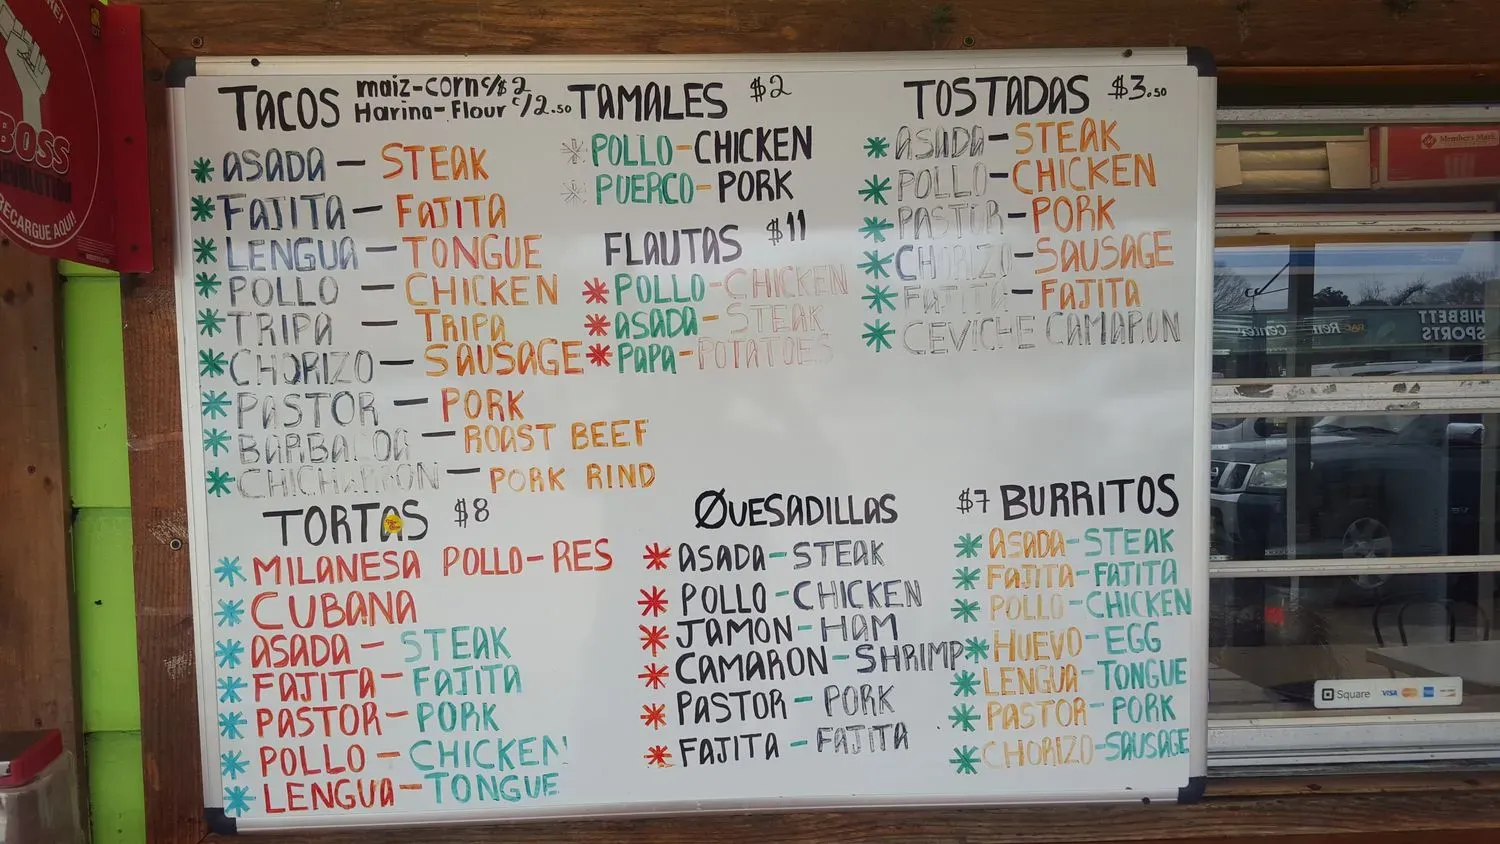 TACOS maiz-corn c/$2
Harina-Flour c/2.50
ASADA — STEAK
FAJITA — FAJITA
LENGUA — TONGUE
POLLO — CHICKEN
TRIPA — TRIPA
CHORIZO — SAUSAGE
PASTOR — PORK
BARBACOA — ROAST BEEF
CHICHARRON — PORK RIND
TAMALES $2
POLLO-CHICKEN
PUERCO-PORK
FLAUTAS $11
POLLO-CHICKEN
ASADA-STEAK
PAPA-POTATOES
TOSTADAS $3.50
ASADA-STEAK
POLLO-CHICKEN
PASTOR-PORK
CHORIZO-SAUSAGE
FAJITA-FAJITA
CEVICHE CAMARON
TORTAS $8
MILANESA POLLO-RES
CUBANA
ASADA-STEAK
FAJITA-FAJITA
PASTOR-PORK
POLLO-CHICKEN
LENGUA-TONGUE
QUESADILLAS
ASADA-STEAK
POLLO-CHICKEN
JAMON-HAM
CAMARON-SHRIMP
PASTOR-PORK
FAJITA-FAJITA
$7 BURRITOS
ASADA-STEAK
FAJITA-FAJITA
POLLO-CHICKEN
HUEVO-EGG
LENGUA-TONGUE
PASTOR-PORK
CHORIZO-SAUSAGE
BOSS
REVOLUTION
RECARGUE AQUI!
Member's Mark
HIBBETT
SPORTS
Center
Square VISA